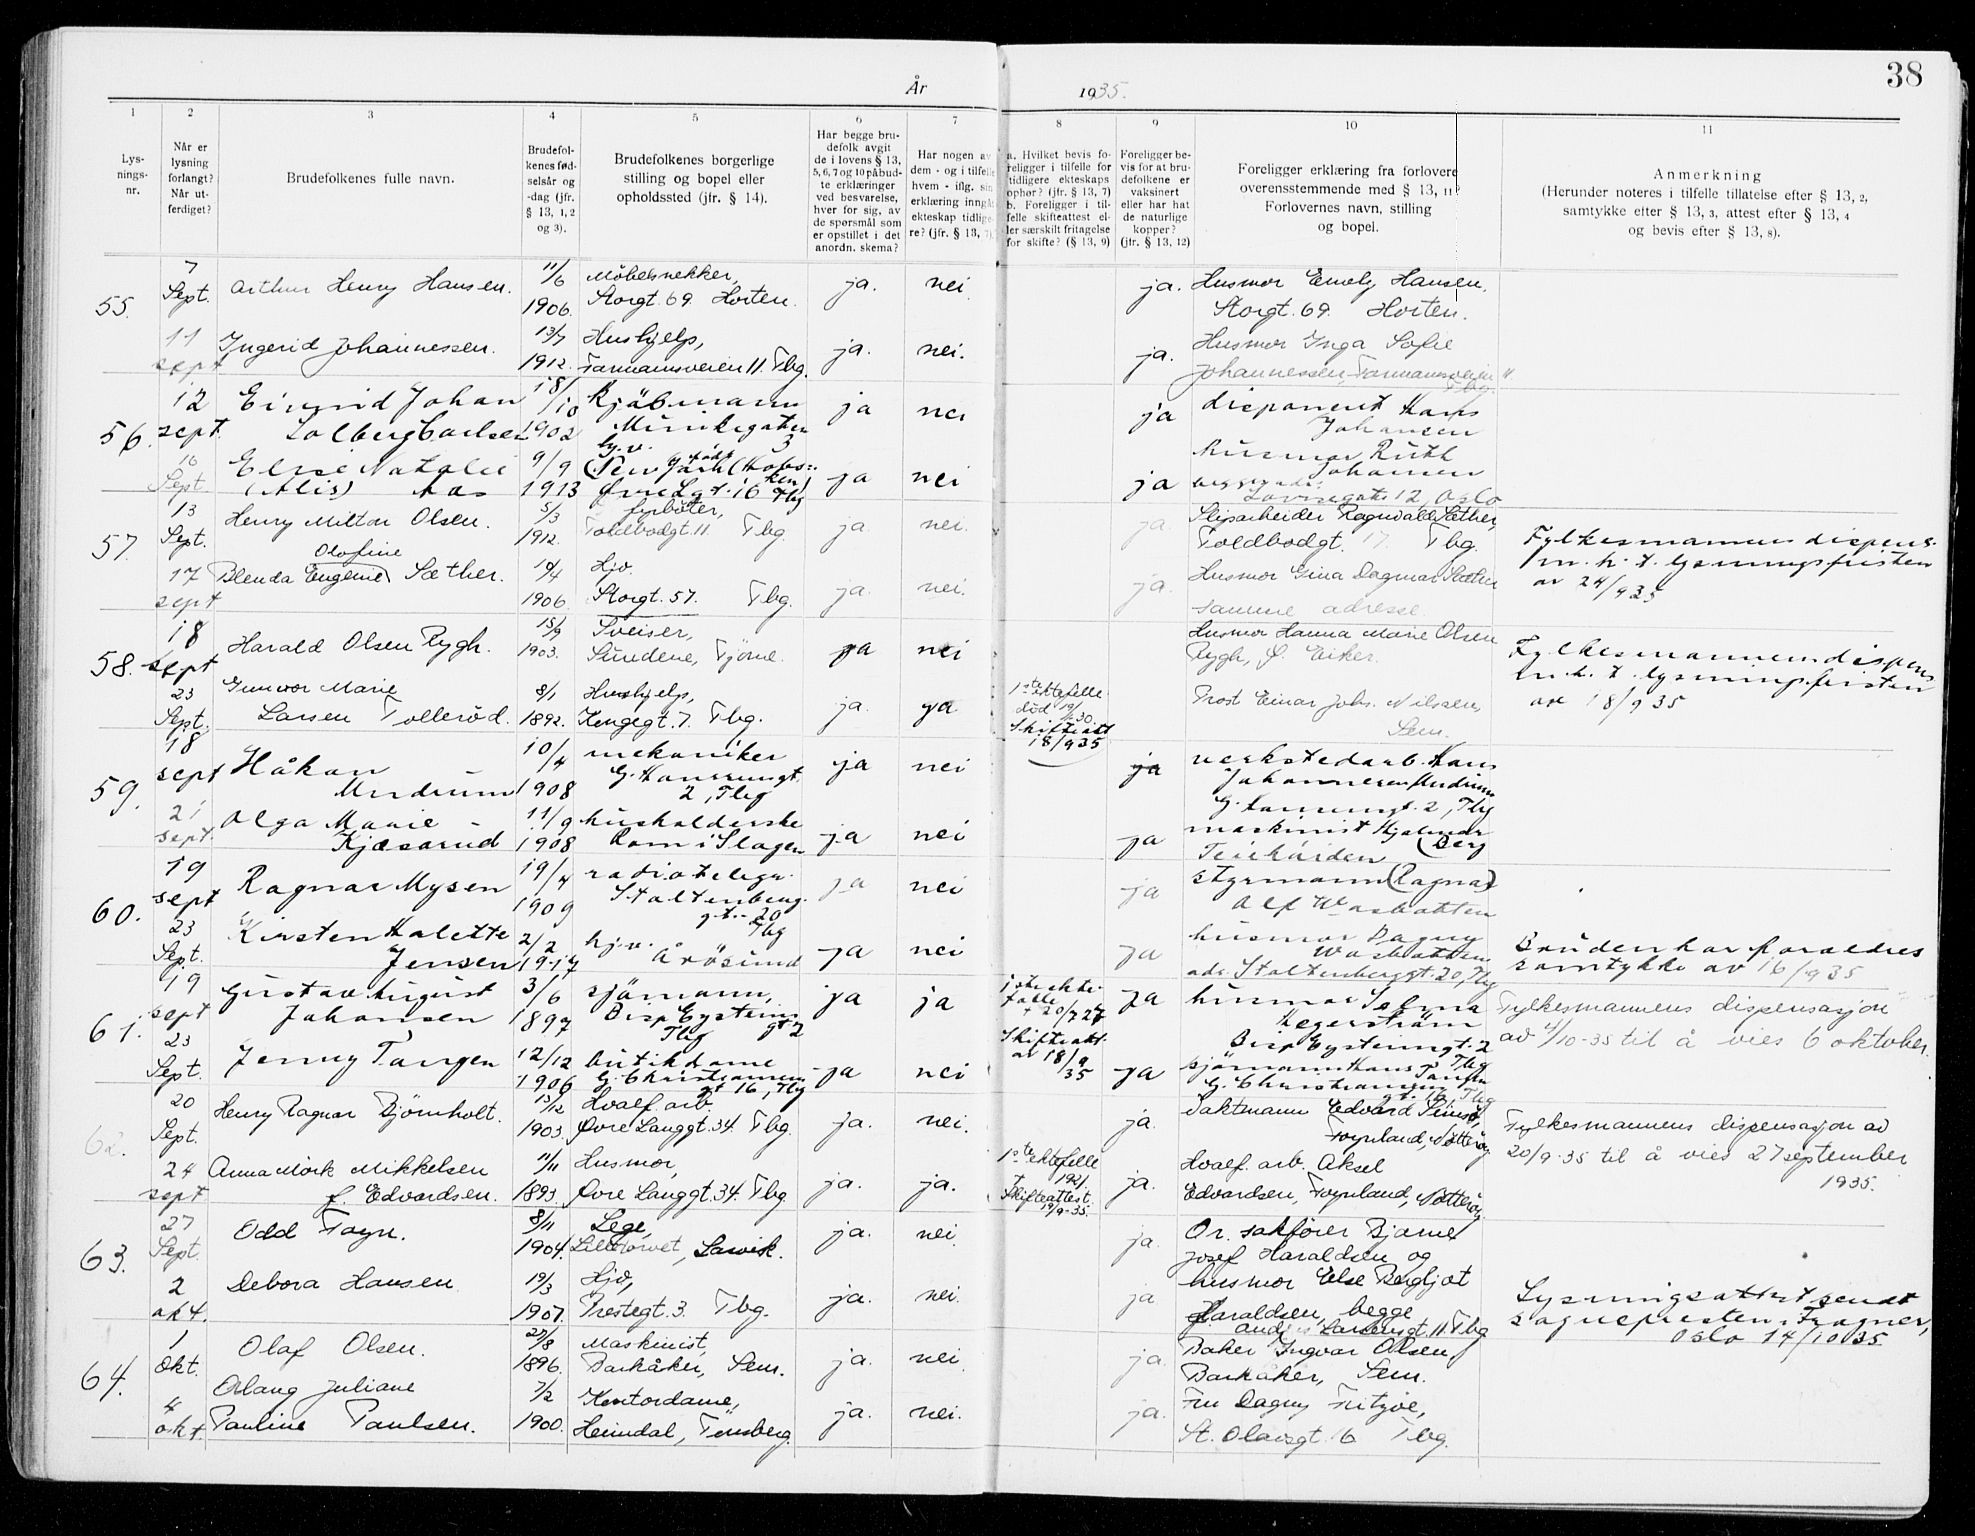 38
År 1935.
1 2 3 4 5 6 7 8 9 10 11
Lys-
nings-
nr.
Når er
lysning
forlangt?
Når ut-
ferdiget?
Brudefolkenes fulle navn.
Brudefol-
kenes fød-
selsår og
-dag (jfr.
§ 13, 1, 2
og 3).
Brudefolkenes borgerlige
stilling og bopel eller
opholdssted (jfr. § 14).
Har begge bru-
defolk avgit
de i lovens § 13,
5, 6, 7 og 10 påbud-
te erklæringer
ved besvarelse,
hver for sig, av
de spørsmål som
er opstillet i det
anordn. skema?
Har nogen av
dem - og i tilfelle
hvem - iflg. sin
erklæring inngåt
ekteskap tidlige-
re? (jfr. § 13, 7).
a. Hvilket bevis fo-
religger i tilfelle for
tidligere ekteskaps
ophør? (jfr. § 13, 7)
b. Foreligger i til-
felle skifteattest el-
ler særskilt fritagelse
for skifte? (§ 13, 9)
Foreligger be-
vis for at bru-
defolkene er
vaksinert
eller har hat
de naturlige
kopper?
(jfr. § 13, 12)
Foreligger erklæring fra forlovere
overensstemmende med § 13, 11?
Forlovernes navn, stilling
og bopel.
Anmerkning
(Herunder noteres i tilfelle tillatelse efter § 13, 2,
samtykke efter § 13, 3, attest efter § 13, 4
og bevis efter § 13, 8).
55.
7 Sept. Arthur Henry Hansen. 11/6 1906. Møbelsnekker,
Storgt. 69 Horten. ja. nei. ja. Husmor Emely Hansen,
Storgt. 69. Horten.
11 sept Ingerid Johannessen. 13/7 1912. Hushjelp,
Farmannsveien 11. Tbg. ja. nei. ja. Husmor Inga Sofie
Johannessen, Farmannsveien 11
Tbg.
56.
12 sept. Eivind Johan
Solberg Carlsen 18/10 1902 kjøbmann
3 ja nei ja disponent Hans
Johansen
16 Sept. Else Natalie
(Alis) Aas 9/9 1913
Øvre Lgt. 16 Tbg ja nei ja husmor Ruth
Johansen
12, Oslo
57.
13 Sept. Henry Milton Olsen. 5/3 1912. fyrbøter,
Toldbodgt. 11. Tbg. ja nei. ja. Slipsarbeider Ragnvald Sæther,
Toldbodgt. 17. Tbg.
Fylkesmannens dispens.
m. h. t. lysningsfristen
av 24/9 35
17 sept Olafine
Blenda Eugenie Sæther. 14/4 1906. Hjv.
Storgt. 57. Tbg. ja. nei. ja. Husmor Gina Dagmar Sæther
samme adresse.
58.
18 sept Harald Olsen Rygh. 15/9 1903. Sveiser,
Sundene, Tjøme. ja nei Husmor Hanna Marie Olsen
Rygh, Ø. Eiker.
Fylkesmannens dispens
m. h. t. lysningsfristen
av 18/9 35
23 Sept. Gunvor Marie
Larsen Tollerød. 8/1 1892. Hushjelp,
Kongegt. 7. Tbg. ja. ja 1ste ektefelle
død
30.
Skifteatt
18/9 35
Prost Einar Johs. Nilssen,
Sem.
59.
18 sept Håkon
Mudrum 10/4 1908 mekaniker
2, Tbg ja nei ja verkstedarb. Hans
Johannesen Mudrum
2, Tbg
21 sept. Olga Marie
Kjæsarud 11/9 1908 husholderske
Rom i Slagen ja nei ja maskinist Hjalmar
Berg
60.
19 sept Ragnar Mysen 19/4 1909 radiotelegr.
Stoltenberg
gt. 20
Tbg ja nei ja styrmann (Ragnar)
Alf
23 Sept. Kirsten Halette
Jensen 2/2 1917 hjv.
Årøsund ja nei ja husmor Dagny
adr. Stoltenberggt. 20, Tbg
Bruden har foreldres
samtykke av 16/9 35
61.
19 sept Gustav August
Johansen 3/6 1897 sjømann,
Bisp Eysteins
gt 2
Tbg ja ja 1ste ekte-
felle
+ 20/7 27
Skifteatt.
av 18/9
35
ja husmor Selma
Hegerstrøm
Bisp Eysteinsgt. 2
Tbg
Fylkesmannens dispensasjon
av 4/10-35 til å vies 6 oktober.
23 Sept. Jenny Tangen 12/12 1906 butikdame
G. Christiansens
gt 16, Tbg ja nei ja sjømann Hans Tangen
G. Christiansens
gt. 16, Tbg
62.
20 Sept. Henry Ragnar Bjørnholt. 13/12 1903. Hvalf. arb.
Øvre Langgt. 34. Tbg. ja. nei. ja. Taktmann Edvard
Føynland, Nøtterøy
Fylkesmannens dispensasjon av
20/9-35 til å vies 27 september
1935.
24 sept Anna Mørk Mikkelsen
f. Edvardsen. 11/11 1893. Husmor,
Øvre Langgt. 34. Tbg ja. ja. 1ste ektefelle
+ 1921.
Skifteattest.
19/9-35. ja. Hvalf. arb. Aksel
Edvardsen, Føynland, Nøtterøy
63.
27 Sept. Odd Føyn. 8/11 1904. Lege,
Lilletorvet, Larvik. ja. nei. ja. Or. sakfører Bjarne
Josef Haraldsen og
2 okt. Debora Hansen 19/3 1907. Hjv,
Prestegt. 3 Tbg. ja. nei. ja husmor Else Bergljot
Haraldsen, begge
11. Tbg
Lysningsattest sendt
sognepresten i Frogner,
Oslo 14/10 35
64.
1 okt. Olaf Olsen. 27/8 1896. Maskinist,
Barkåker, Sem. ja. nei. ja. Baker Ingvar Olsen,
Barkåker, Sem.
4 okt. Juliane
Pauline Paulsen. 7/2 1900. Kontordame,
Heimdal, Tønsberg. ja. nei. ja. Fru Dagny Fritzøe,
St. Olavsgt. 6 Tbg.